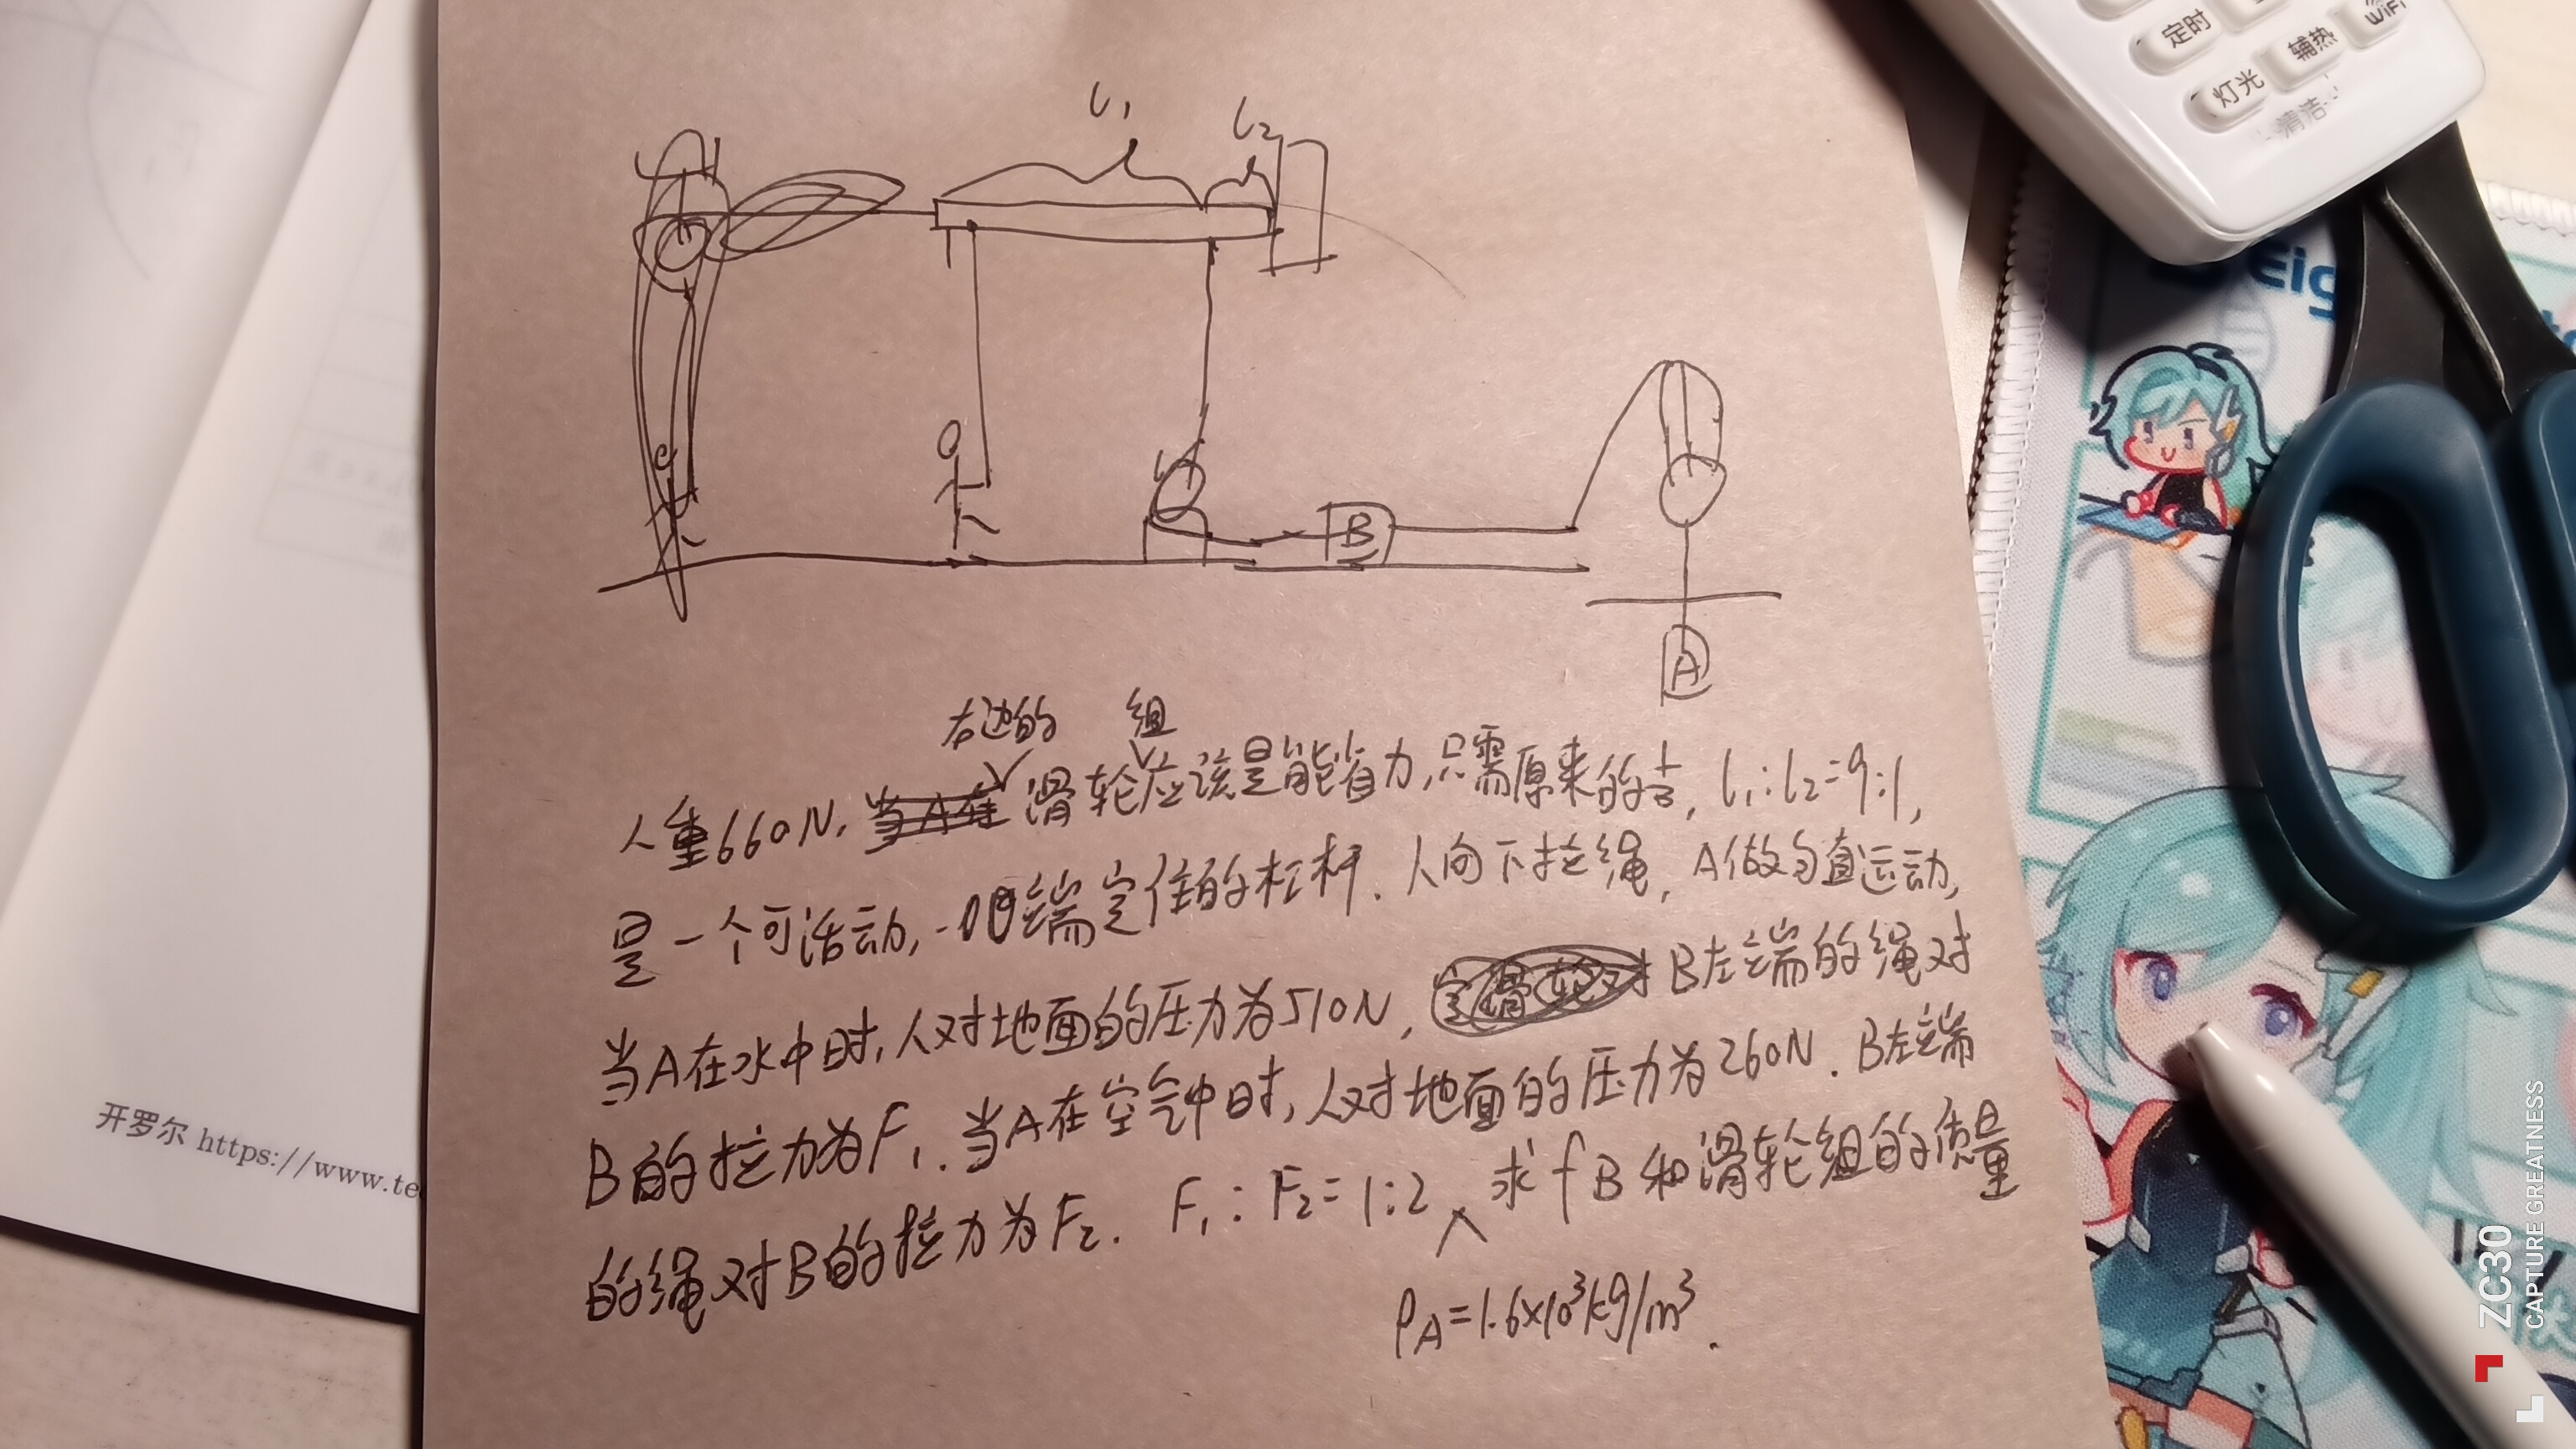 定时
辅热
WiFi
灯光
清洁
Eig
l₁
l₂
B
A
右边的 组
人重660N. 滑轮应该是能省力,只需原来的1/3, l₁:l₂=9:1,
是一个可活动,一端定住的杠杆. 人向下拉绳, A做匀直运动,
当A在水中时,人对地面的压力为510N, B左端的绳对
B的拉力为F₁. 当A在空气中时,人对地面的压力为260N. B左端
的绳对B的拉力为F₂. F₁:F₂=1:2 ∧ 求fB和滑轮组的质量
ρA=1.6×10³kg/m³.
开罗尔 https://www.te
ZC30
CAPTURE GREATNESS